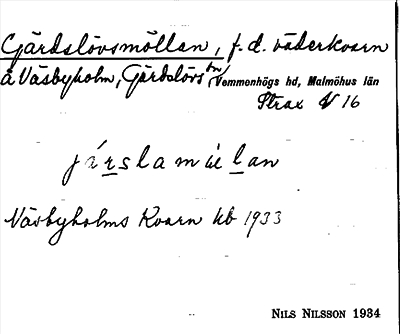 Gärdslövsmöllan, f. d. väderkvarn
å Väsbyholm, Gärdslövs sn, Vemmenhögs hd, Malmöhus län
Strax V 16
járslamúlan
Näsbyholms Kvarn kb 1933
NILS NILSSON 1934